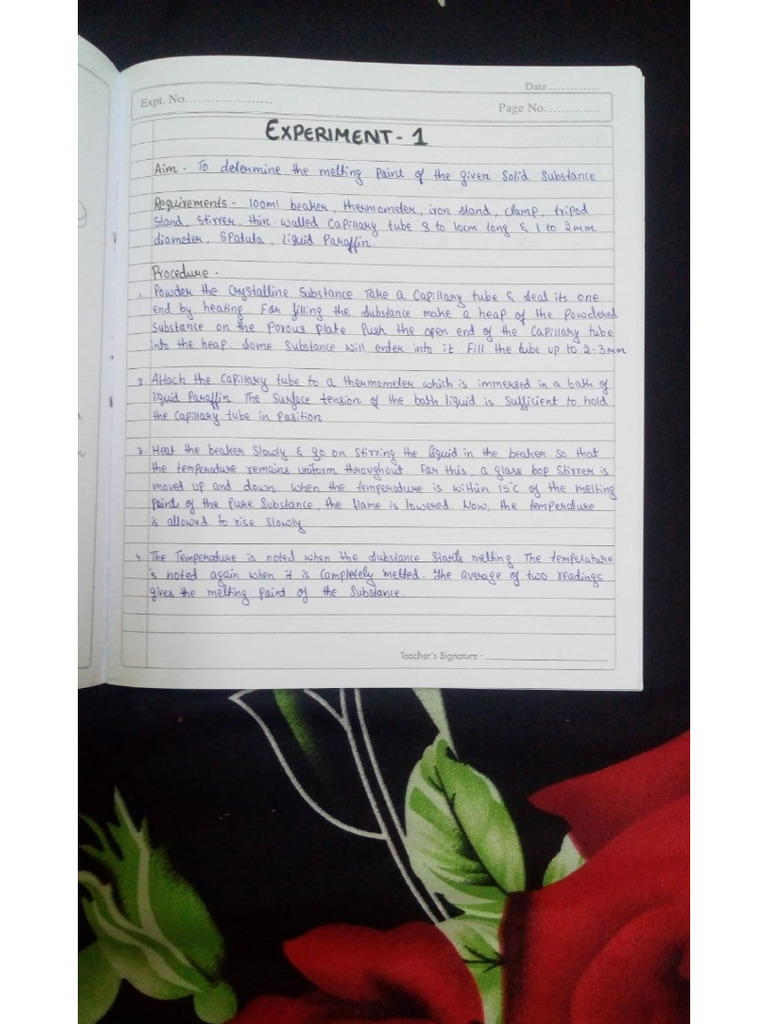 Date............
Expt. No.....................
Page No.............
EXPERIMENT - 1
Aim - To determine the melting Point of the given Solid Substance
Requirements - 100ml beaker, thermometer, iron stand, clamp, tripod
Stand, Stirrer, thin-walled Capillary tube 8 to 10cm long & 1 to 2mm
diameter, Spatula, liquid Paraffin.
Procedure -
1. Powder the Crystalline Substance. Take a Capillary tube & Seal its one
end by heating. For filling the Substance make a heap of the Powdered
Substance on the Porous Plate. Push the open end of the Capillary tube
into the heap. Some Substance will enter into it. Fill the tube up to 2-3mm
2. Attach the Capillary tube to a thermometer which is immersed in a bath of
liquid Paraffin. The Surface tension of the bath liquid is Sufficient to hold
the Capillary tube in Position.
3. Heat the beaker Slowly & go on Stirring the liquid in the beaker so that
the temperature remains uniform throughout. For this, a glass oop Stirrer is
moved up and down. when the temperature is within 15°C of the melting
Point of the Pure Substance, the flame is lowered. Now, the temperature
is allowed to rise Slowly.
4. The Temperature is noted when the Substance Starts melting. The temperature
is noted again when it is Completely melted. The average of two readings
gives the melting Point of the Substance.
Teacher's Signature : ____________________